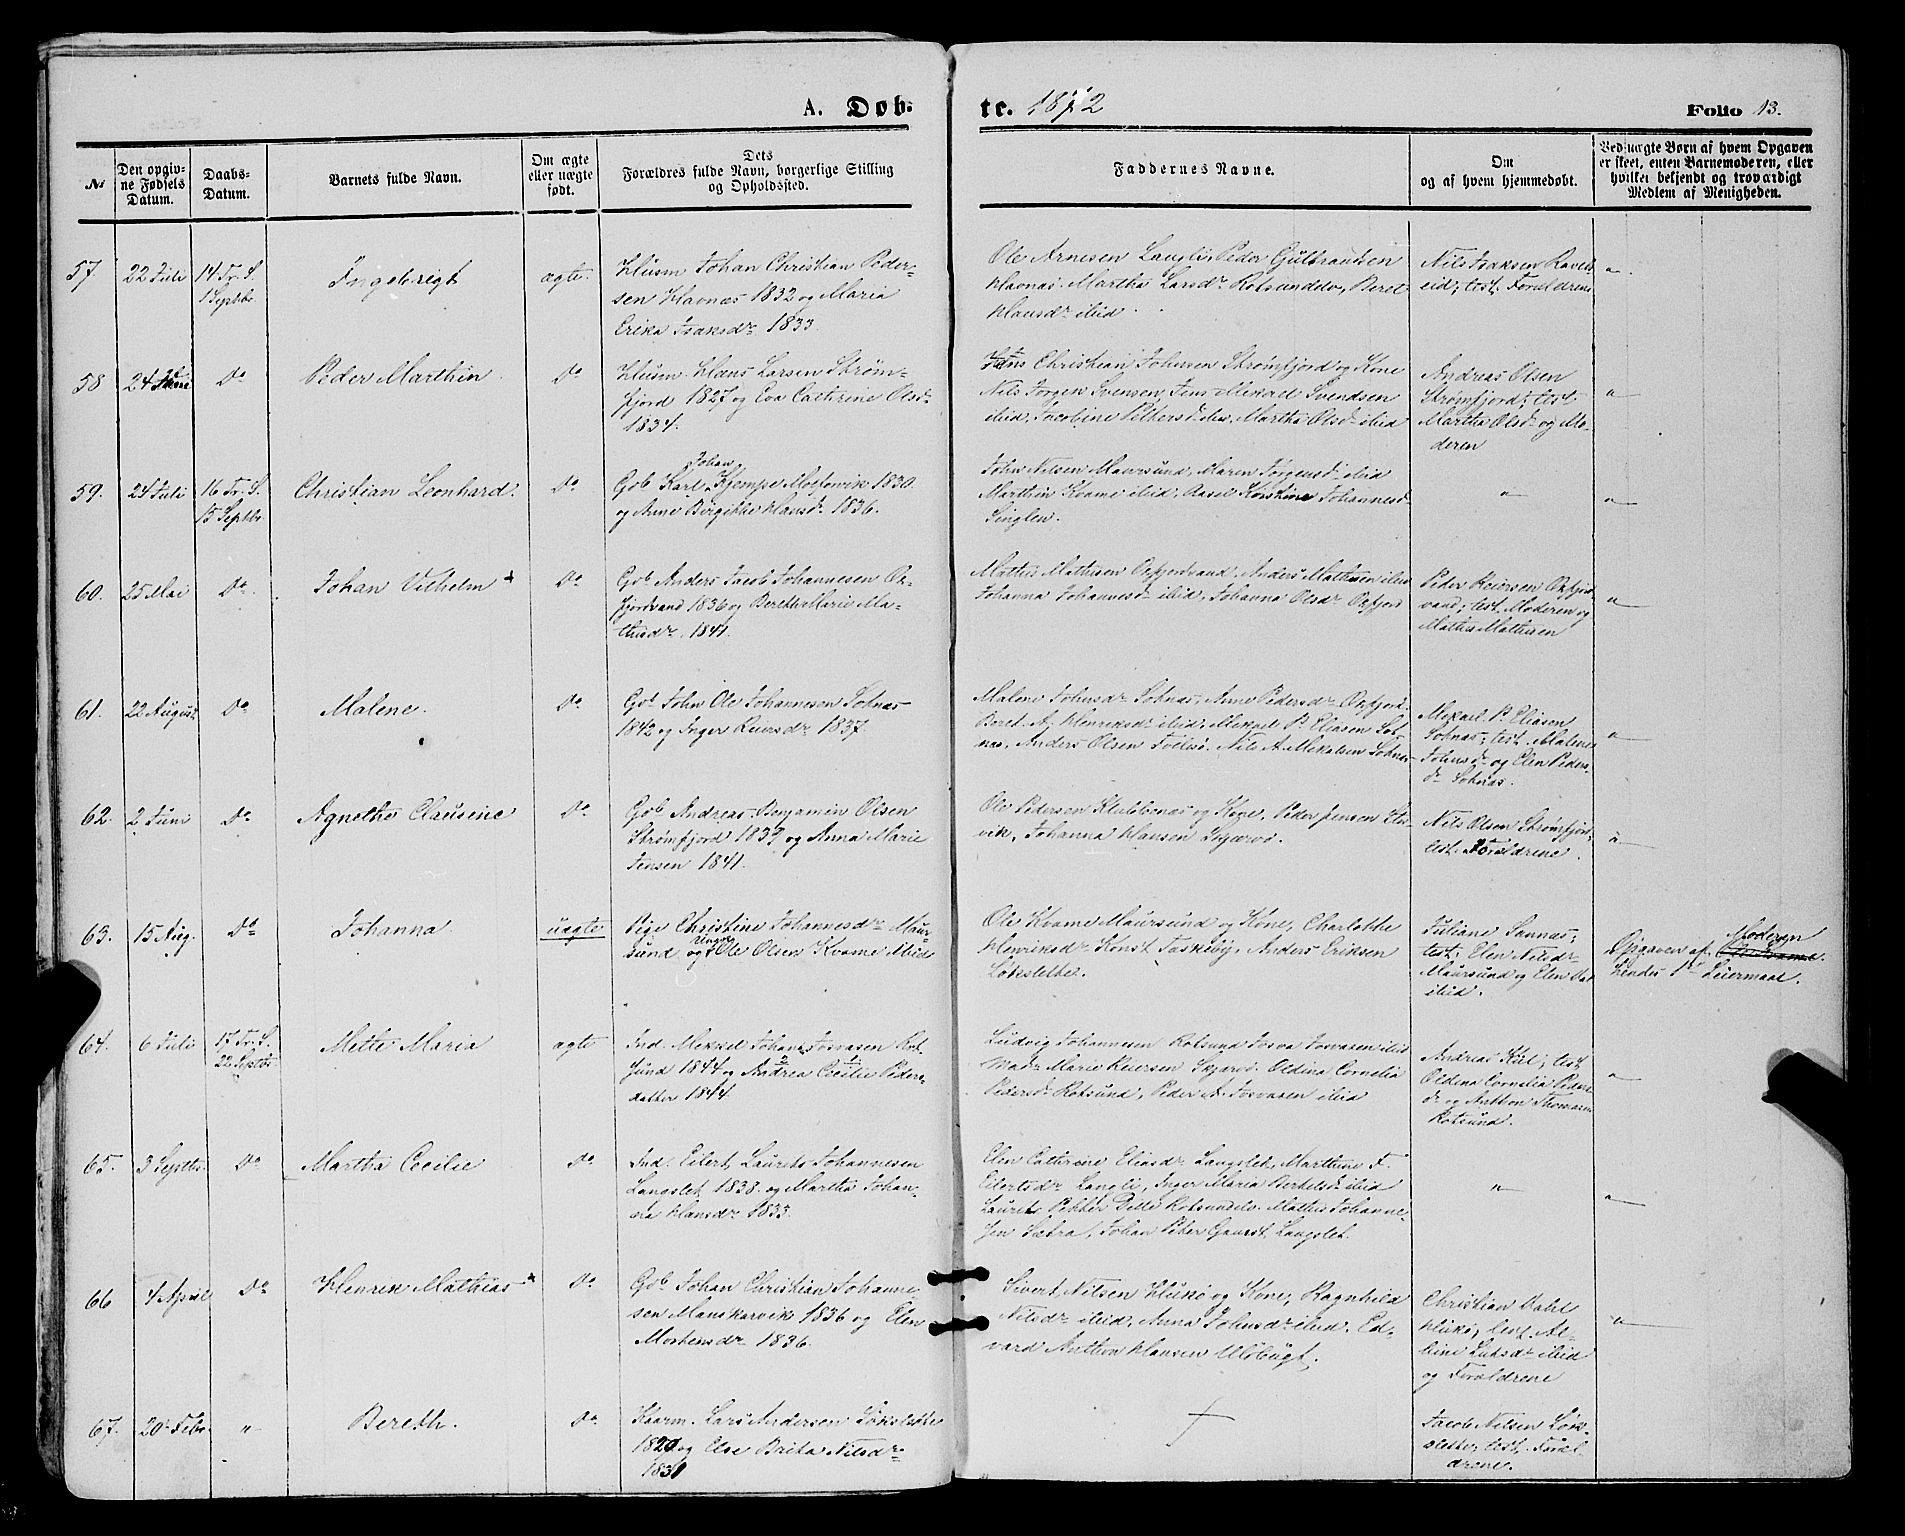 A. Døb-
te. 1872
Folio 13.
No
Den opgiv-
ne Fødsels
Datum.
Daabs-
Datum.
Barnets fulde Navn.
Om ægte
eller uægte
født.
Dets
Forældres fulde Navn, borgerlige Stilling
og Opholdssted.
Faddernes Navne.
Om
og af hvem hjemmedøbt.
Ved uægte Børn af hvem Opgaven
er skeet, enten Barnemoderen, eller
hvilket betjendt og troværdigt
Medlem af Menigheden.
57. 22 Juli 14 Tr. S.
1 Septbr.
Ingebrigt
ægte
Husm Johan Christian Peder-
sen Havnæs 1832 og Maria
Erika Isaksdr 1833.
Ole Arnesen Langli, Peder Gulbrandsen
Havnæs. Martha Larsdr Rotsunddal, Beret
Hansdr ibid.
Nils Isaksen
eid; test. Forældrene
"
58 24 Do
Peder Marthin
Do
Husm. Hans Larsen Strøm-
fjord 1827 og Eva Cathrine Olsdr
1834.
Hans Christian Johnsen Strømfjord og Kone
Nils Jørgen Svensen, Jens Mikael Svendsen
ibid, Jacobine Pettersdr ibid, Martha Olsdr ibid
Andreas Olsen
Strømfjord; test
Martha Olsdr og Mo-
deren
"
59. 24 Juli 16 Tr. S.
15 Septbr.
Christian Leonhard.
Do
Johan
Gb Karl Kjempe 1830
og Anne Birgitte Hansdr 1836.
John Nilsen Maursund, Maren Jørgensdr ibid
Marthin Kvame ibid, Aasel Kirstine Johannesdr
Singlen.
"
"
60. 25 Mai Do
Johan Vilhelm +
Do
Gb Anders Jacob Johannesen Ox-
fjordvand 1836 og Bereth Marie Ma-
thisdr. 1841.
Mathis Mathisen Oxfjordvand, Anders Mathisen ibid
Johanna Johannesdr ibid, Johanna Olsdr Oxfjord
Peder Reiersen Oxfjord
vand; test. Moderen og
Mathis Mathisen
"
61. 22 August Do
Malene.
Do
Gb John Ole Johannesen Sobnæs
1842 og Inger Reiersdr 1837
Malene Johnsdr Sobnæs, Anne Pedersdr Oxfjord.
Beret A. Henriksdr ibid; Mikael P. Eliasen Sob-
næs, Anders Olsen, Nils A. Mikalsen Sobnæs
Mikael P. Eliasen
Sobnæs; test. Malene
Johnsdr og Elen Peders-
dr Sobnæs.
"
62. 2 Juni Do
Agnethe Clausine
Do
Gb Andreas Benjamin Olsen
Strømfjord 1839 og Anna Marie
Jensen 1841.
Ole Pedersen Klubbenæs og Kone, Peder Jensen
vik, Johanna Hansen Skjærvø.
Nils Olsen Strømfjord
test. Forældrene.
"
63. 15 Aug. Do
Johanna.
uægte
Pige Christine Johannesdr Maur-
sund og Ungkl Ole Olsen Kvame ibid
Ole Kvame Maursund og Kone, Charlotte
Henriksdr Taskeby, Anders Eriksen
Løkslette.
Juliane Sannæs;
test. Elen Nilsdr
Maursund og Elen
ibid.
Moderen
Opgaven af
hendes 1ste Leiermaal.
64. 6 Juli 17 Tr. S.
22 Septbr
Mette Maria
ægte
Ind. Mekkel Johan Josvasen Rot-
sund 1844 og Andrea Cecilie Peders-
datter 1844.
Ludvig Johannesen Rotsund Josva Josvasen ibid
Madm Marie Reiersen Skjærvø. Oldina Cornelia
Pedersdr Rotsund, Peder A. Josvasen ibid
Andreas Kiil; test
Oldina Cornelia Peders-
dr og Anthon Thomasen
Rotsund.
"
65. 3 Septbr. Do
Martha Cecilie
Do
Ind. Eilert Laurits Johannesen
Langslet 1838 og Martha Johan-
na Hansdr 1833.
Elen Cathrine Eliasdr Langslet, Marthine F.
Eilertsdr Langli, Inger Maria Berhelsdr ibid
Laurits Petter Dille Rotsundelv. Mathis Johanne-
sen Sætra, Johan Peter Langslet.
"
"
66 4 April Do
Henrik Mathias +
Do
Gb Johan Christian Johanne-
sen Manskarvik 1836 og Elen
Mortensdr 1836.
Sivert Nilsen Hukø og Kone, Ragnhild
Nilsdr ibid, Anna Johnsdr ibid. Ed-
vard Anthon Hansen Uløbugt.
Christian Dahl
Hukø; test. Al-
bine ibid
og Forældrene
"
67. 20 Febr. "
Bereth.
Do
Kaarm. Lars Andersen Løkslette
1820 og Else Brita Nilsdr
1831
†
Jacob Nilsen Løk-
slette, test. Foræl-
drene.